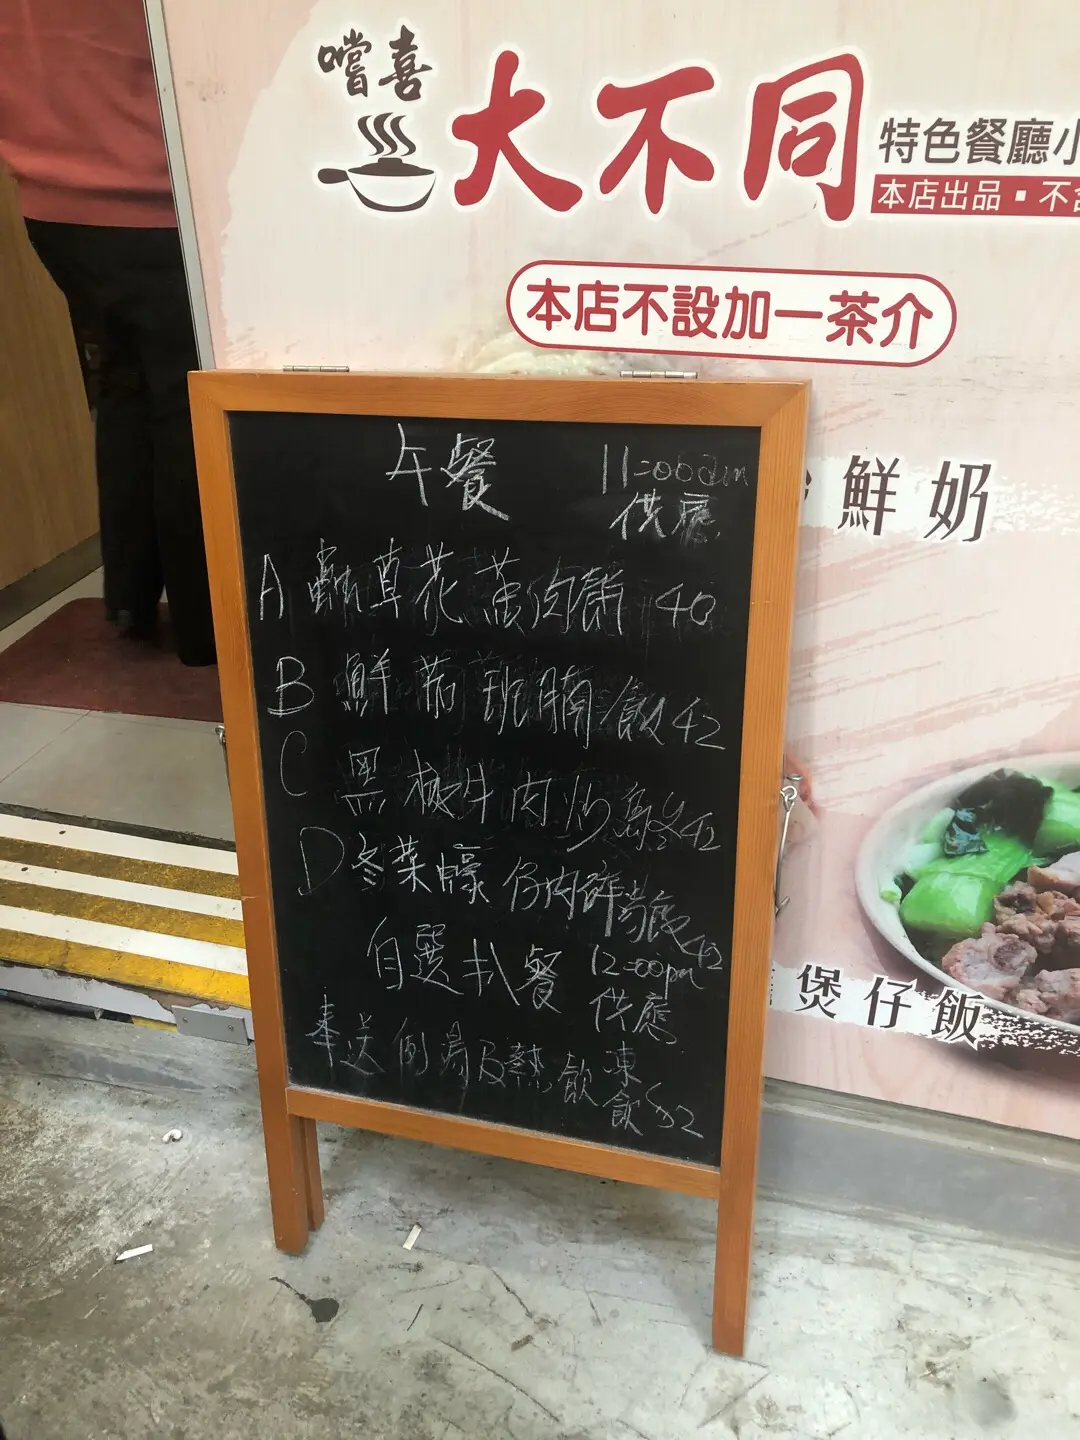 嚐喜
大不同
特色餐廳小
本店出品▪不含
本店不設加一茶介
鮮奶
煲仔飯
午餐
11:00am
供應
A 草花蒸肉餅 40
B 鮮茄班腩飯 42
C 黑椒牛肉炒 42
D 冬菜 仔肉餅飯 42
自選扒餐
12:00pm
供應
奉送例湯及熱飲
凍飲 $2